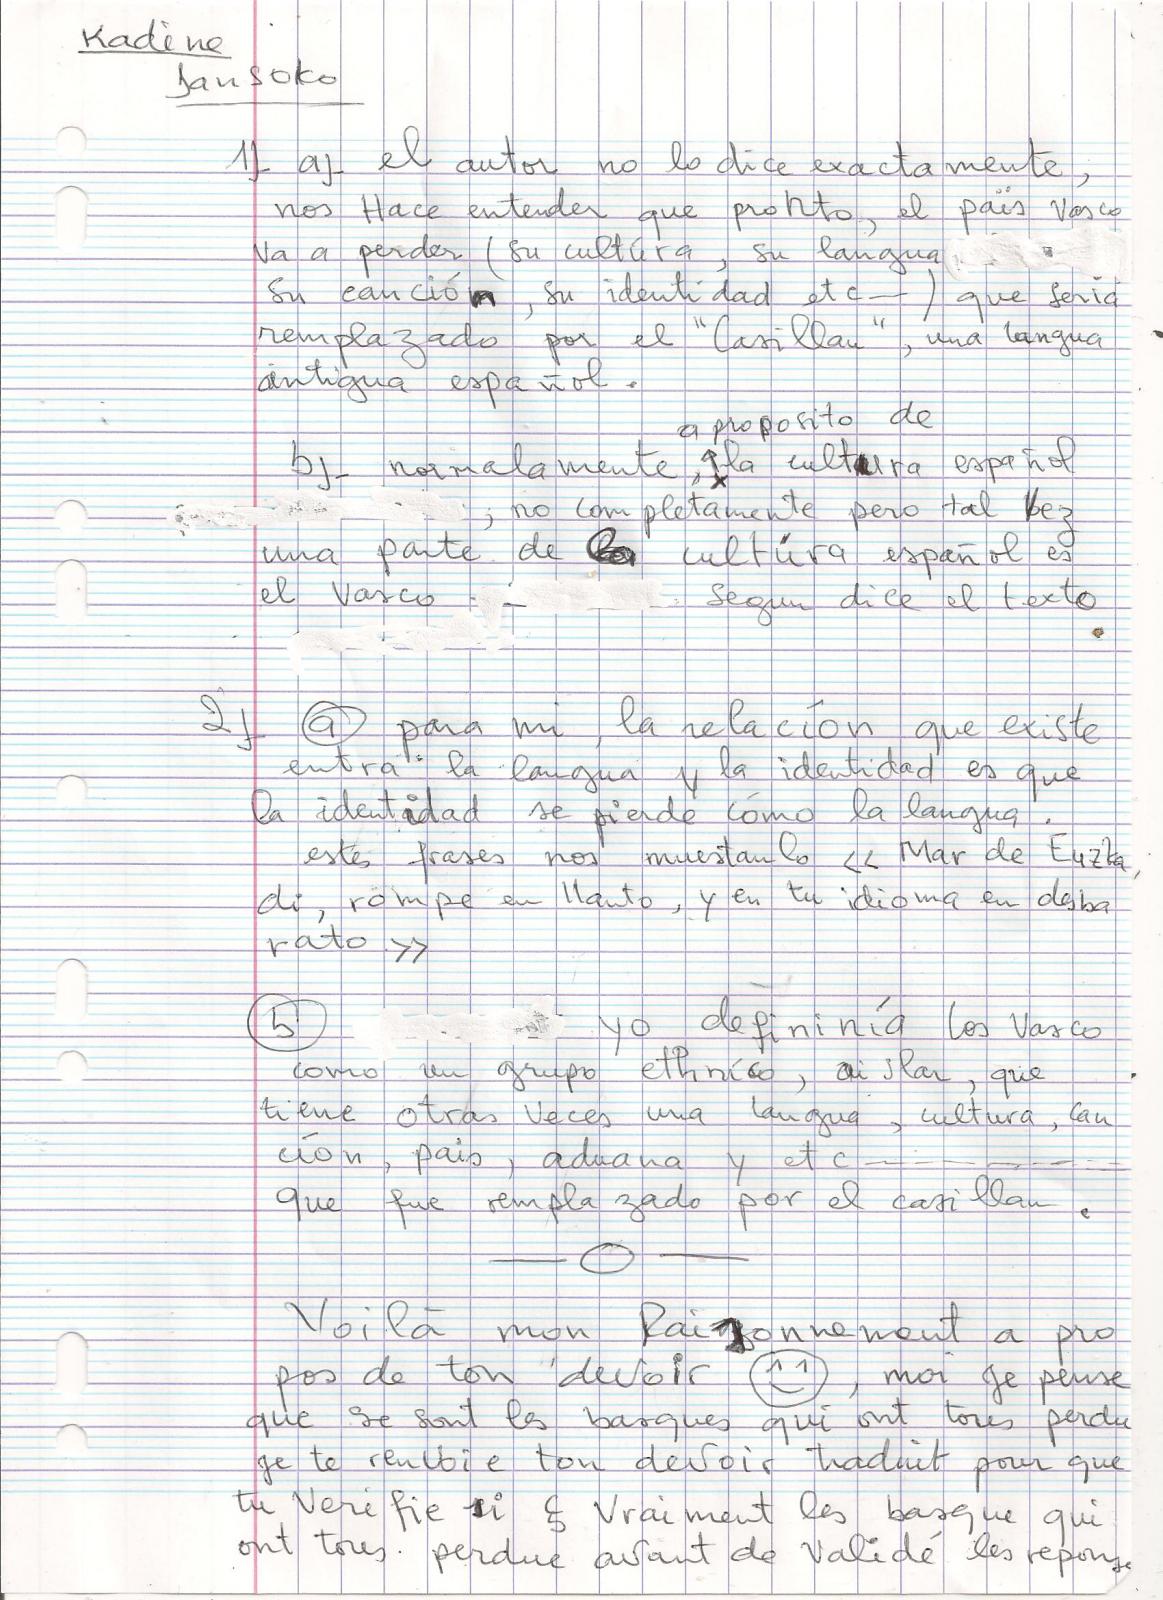 Kadine
Sansoko
1)_ a)_ el autor no lo dice exactamente,
nos Hace entender que pronto, el païs Vasco
Va a perder (su cultúra, su langua
su canción, su identidad etc—) que seria
remplazado por el "Casillan", una langua
antigua español.
a proposito de
b)_ normalamente, la cultura español
, no completamente pero tal bez
una parte de la cultúra español es
el Vasco. Segun dice el texto
.
2)_ (a) para mi, la relacíon que existe
entra la langua y la identidad es que
la identidad se pierde cómo la langua.
estes frases nos muestanlo << Mar de Euzka
di, rompe en llanto, y en tu idioma en desba
rato >>
(b) yo defininía los Vasco
como un grupo ethnico, aislar, que
tiene otras Veces una langua, cultura, can
cíon, pais, aduana y etc
que fue remplazado por el casillan.
—O—
Voilà mon Raisonnement a pro
pos de ton devoir, moi je pense
que se sont les basques qui ont tous perdu
je te renvoie ton devoir traduit pour que
tu Verifie si ç Vraiment les basque qui
ont tous. perdue avant de Validé les reponse